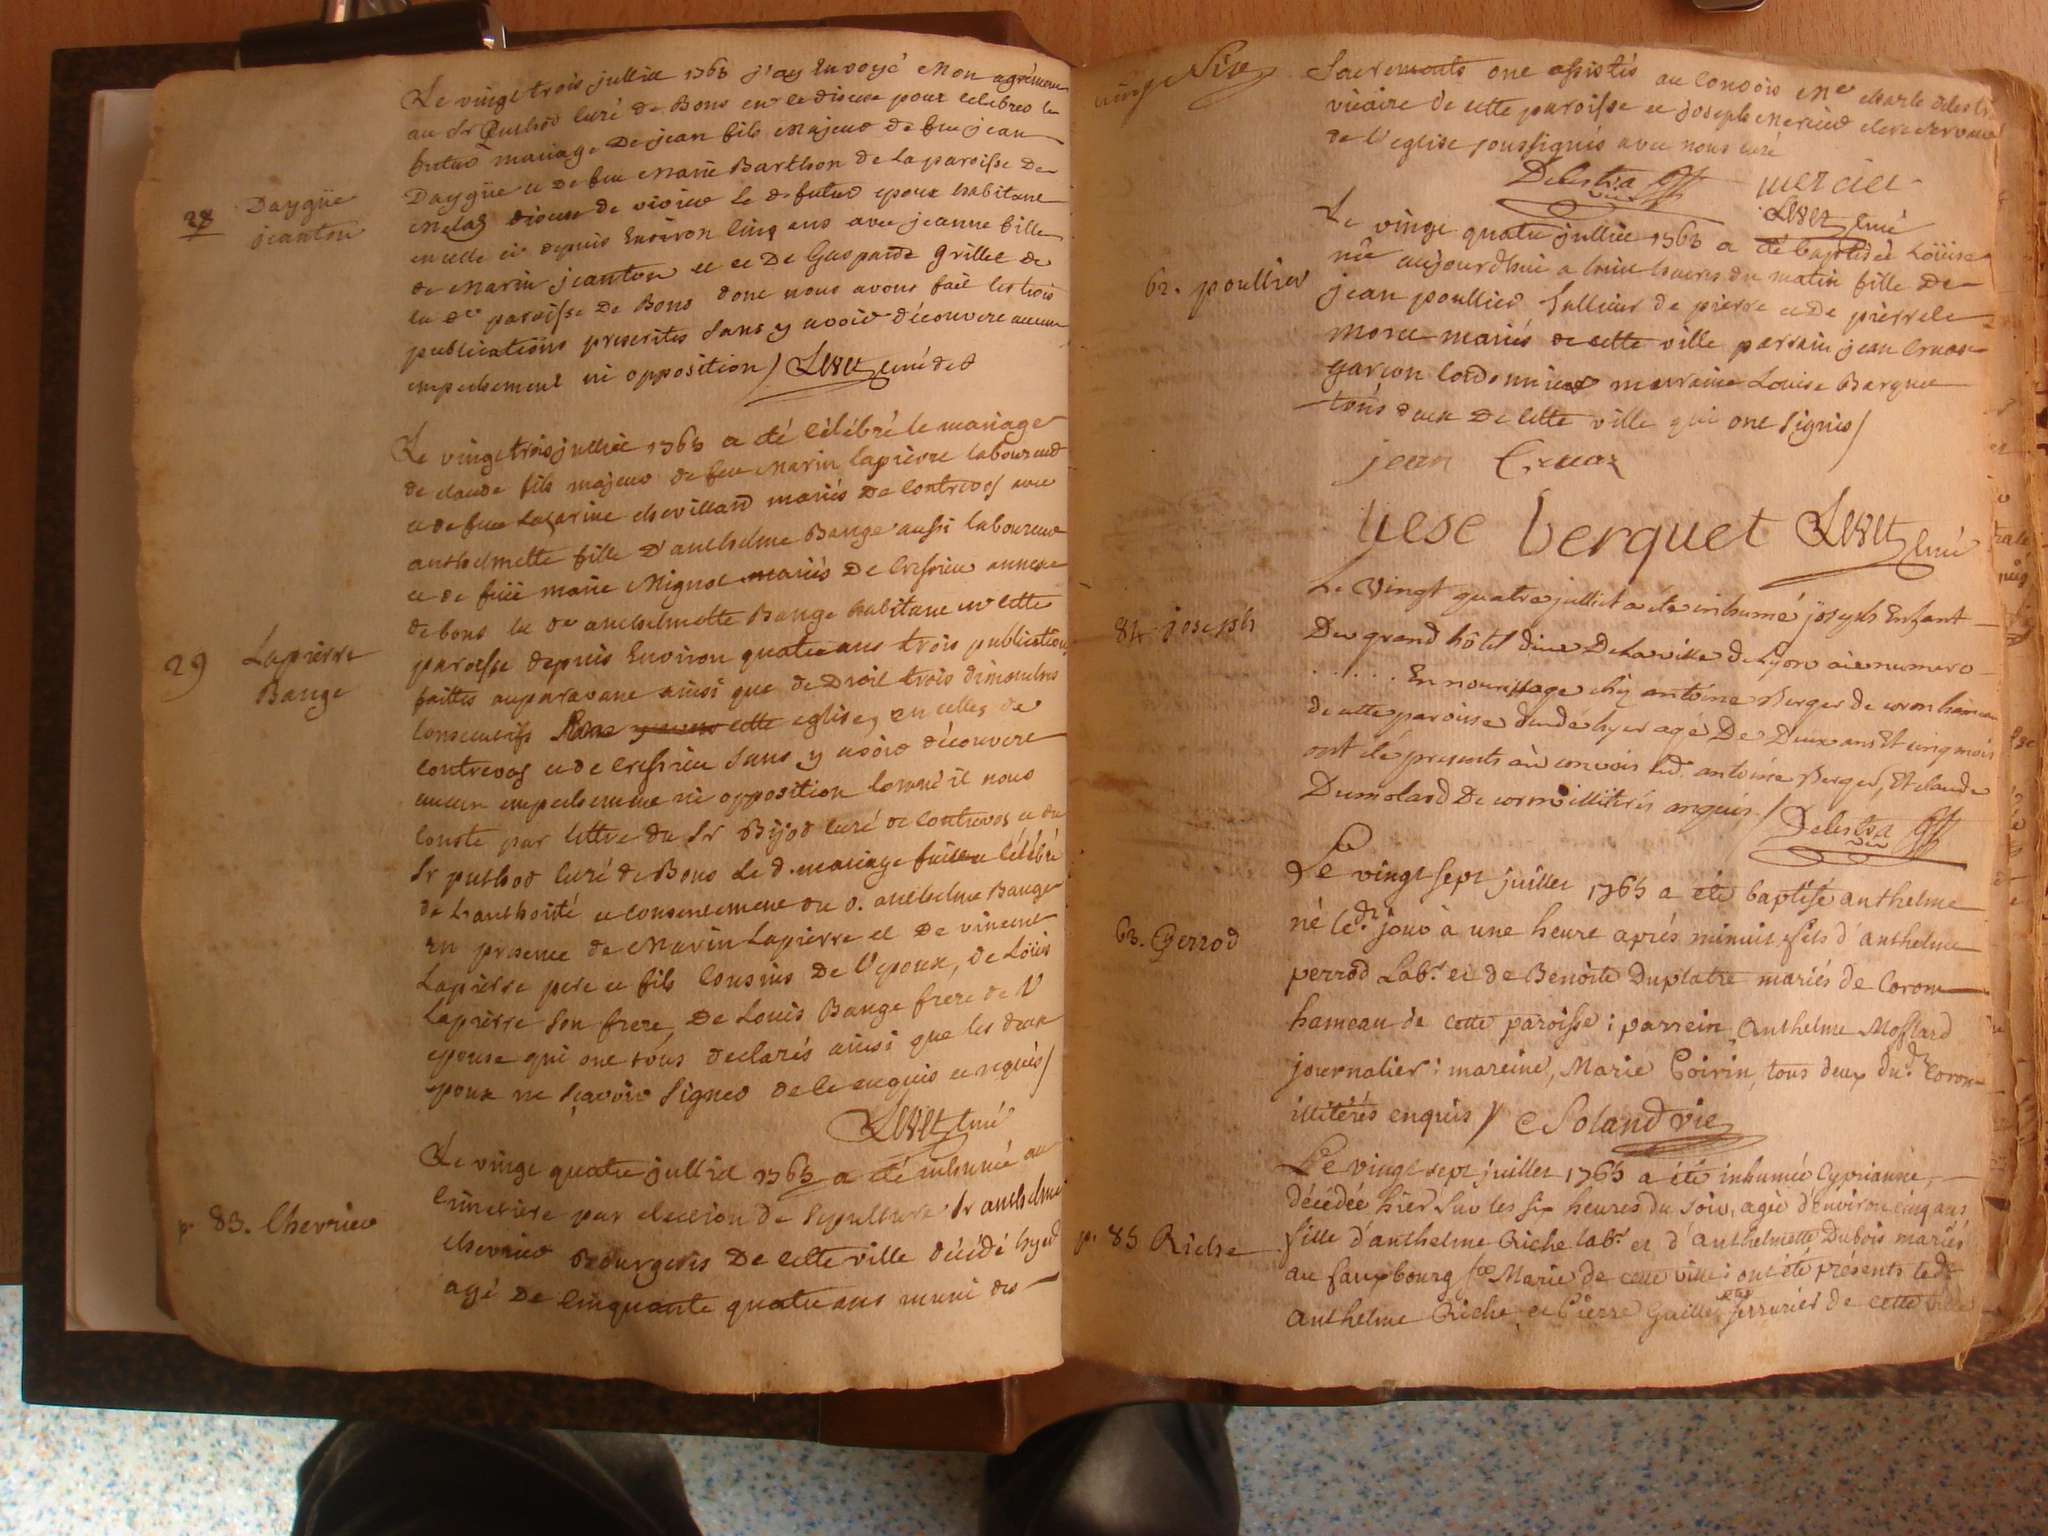 Le vingt trois julliet 1763 j'ay Envoyé Mon agrément
au Sr Puthod Curé de Bons en ce diocese pour celebrer le
futur mariage De jean fils Majeur de feu jean
Dayguë et de feu Marie Barthon de La paroisse De
diocese de le d futur epoux habitant
en celle ci depuis Environ Cinq ans avec jeanne fille
de Marin jeanton et De Gasparde Grillet de
la de paroisse De Bons dont nous avons fait les trois
publications prescrites Sans y avoir découvert aucun
empechement ni opposition / curé
28 Dayguë
jeanton
Le vingt trois julliet 1763 a été Célébré le mariage
de claude fils majeur de feu Marin Lapierre laboureur
et de feue Lazarine chevillard mariés De Contrevoz avec
anthelmette fille D'anthelme Bange aussi laboureur
et de feüe marie Mignot mariés De Cressieu annexe
de bons la de anthelmette Bange habitant en cette
paroisse depuis Environ quatre ans trois publications
faittes auparavant ainsi que de Droit trois dimanches
consecutifs cette eglise, en celles de
Contrevoz et de Cressieu Sans y avoir découvert
aucun empechement ni opposition comme il nous
Conste par lettre du Sr Bijod Curé de Contrevoz et du
Sr puthod Curé de Bons Le d. mariage Célébré
de L'authorité et consentement du d. anthelme Bange
en presence de Marin Lapierre et De vincent
Lapierre pere et fils Cousins De l'epoux, de Loüis
Lapierre Son frere, De Louis Bange frere de l'
epouse qui ont tous declarés ainsi que les deux
epoux ne sçavoir Signer de ce enquis et requis /
curé
29 Lapierre
Bange
Le vingt quatre julliet 1763 a été inhumé au
Cimetiere par election de Sepulture Sr anthelme
chevrier Bourgeois De cette ville décédé hyer
agé De cinquante quatre ans muni des
p. 83. Chevrier
vingt Six
Sacrements ont assistés au convois Me charle delestra
vicaire de cette paroisse et joseph Mercier clerc servant
de l'eglise soussignés avec nous curé
Delestra vic
mercier
curé
Le vingt quatre julliet 1763 a été baptisée Loüise
née aujourdhui a huit heures du matin fille De
jean poullier tallieur de pierre et De pierrete
moret mariés de cette ville parrain jean Cruaz
garçon Cordonnier marraine Louise Barquet
tous deux De cette ville qui ont Signés /
62. poullier
jean Cruaz
berquet curé
Le Vingt quatre julliet a été inhumé joseph Enfant
Du grand hôtel dieu De la ville de Lyon aïe numero
. . . . . . En nourissage chez antoine Berger de coron hameau
de cette paroisse decedé hyer agé De Deux ans Et cinq mois
ont été presents au convois led. antoine Berger, Et claude
Dumolard De coron illitérés enquis /
84. joseph
Delestra vic
Le vingt sept juillet 1763 a été baptisé anthelme
né led. jour à une heure aprés minuit, fils d'anthelme
perrod Labr. et de Benoite Duplatre mariés de Coron
hameau de cette paroisse : parrein, Anthelme Mossard
journalier : mareine, Marie Poirin, tous deux dud. Coron
illitérés enquis / Soland vic
63. Perrod
Le vingt sept juillet 1763 a été inhumée Cyprianne,
décédée hier sur les six heures du soir, agée d'environ cinq ans
fille d'anthelme Riche labr. et d'anthelmette Dubois mariés
au fauxbourg Ste Marie de cette ville : ont été présents led.
anthelme Riche et Pierre Guillet serrurier de cette ville
p. 85 Riche